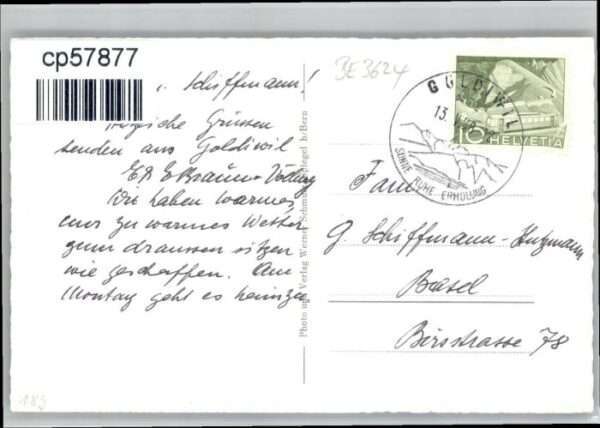 cp57877
BE 3624
Schiffmann!
Herzliche Grüsse
senden aus Goldiwil
E & E Braun-
Wir haben warmes,
nur zu warmes Wetter
zum draussen sitzen
wie geschaffen. Am
Montag geht es heimzu
Photo und Verlag Werner Schm b/Bern
GOLDIWIL
13.
SONNE RUHE ERHOLUNG
10 HELVETIA
Fam
G. Schiffmann-Hutzmann
Basel
Birsstrasse 78
183